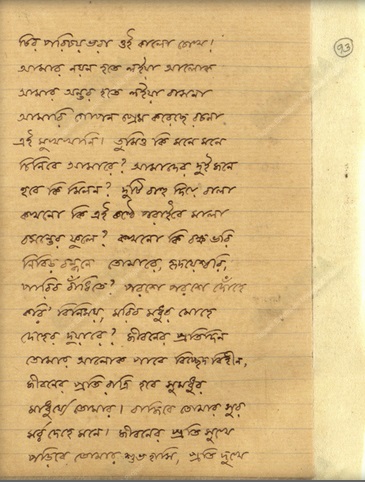 চির পরিচয় ভরা ওই কালো চোখ!
আমার নয়ন হতে লইয়া আলোক
আমার অন্তর হতে লইয়া বাসনা
আমারি গোপন প্রেম করেছে রচনা
এই মুখখানি। তুমিও কি মনে মনে
চিনিবে আমারে? আমাদের দুইজনে
হবে কি মিলন? দুটি বাহু দিয়ে বালা
কখনো কি এই কণ্ঠে পরাইবে মালা
বসন্তের ফুলে? কখনো কি বক্ষ ভরি
নিবিড় বন্ধনে তোমারে, হৃদয়েশ্বরী,
পারিব বাঁধিতে? পরশে পরশে দোঁহে
করি' বিনিময়, মরিব মধুর মোহে
দেহের দুয়ারে? জীবনের প্রতিদিন
তোমার আলোক পাবে বিচ্ছেদ বিহীন,
জীবনের প্রতি রাত্রি হবে সুমধুর
মাধুর্য্যে তোমার। বাজিবে তোমার সুর
সর্ব্ব দেহে মনে। জীবনের প্রতি সুখে
পড়িবে তোমার শুভ্রহাসি, প্রতি দুখে